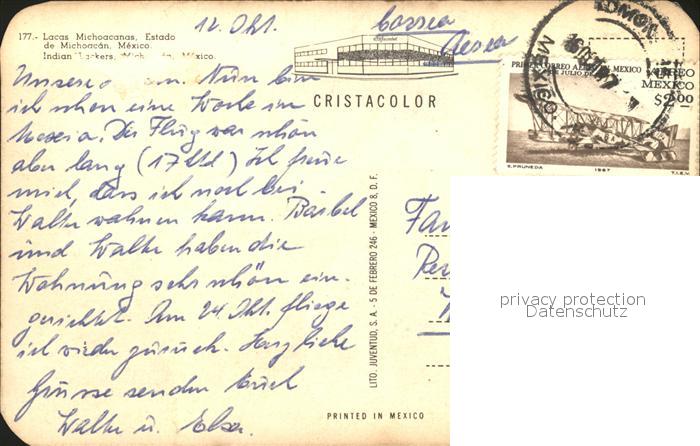 177.- Lacas Michoacanas, Estado
de Michoacán, México.
Indian Lackers, México.
12. Okt.
Correo
Aereo
CRISTACOLOR
PRIMER CORREO AEREO EN MEXICO
DE JULIO DE
AEREO
MEXICO
$2.00
S. PRUNEDA 1967 T.I.E.V.
MEXICO
Nun bin
ich schon eine Woche in
Mexico. Der Flug war schön
aber lang (17 Std) Ich freue
mich, dass ich noch bei
Walter wohnen kann. Bärbel
und Walter haben die
Wohnung sehr schön ein-
gerichtet. Am 24 Okt. fliege
ich wieder zurück. Herzliche
Grüsse senden Euch
Walter u. Elsa.
LITO. JUVENTUD, S. A. - 5 DE FEBRERO 246 - MEXICO 8, D. F.
Fam
privacy protection
Datenschutz
PRINTED IN MEXICO